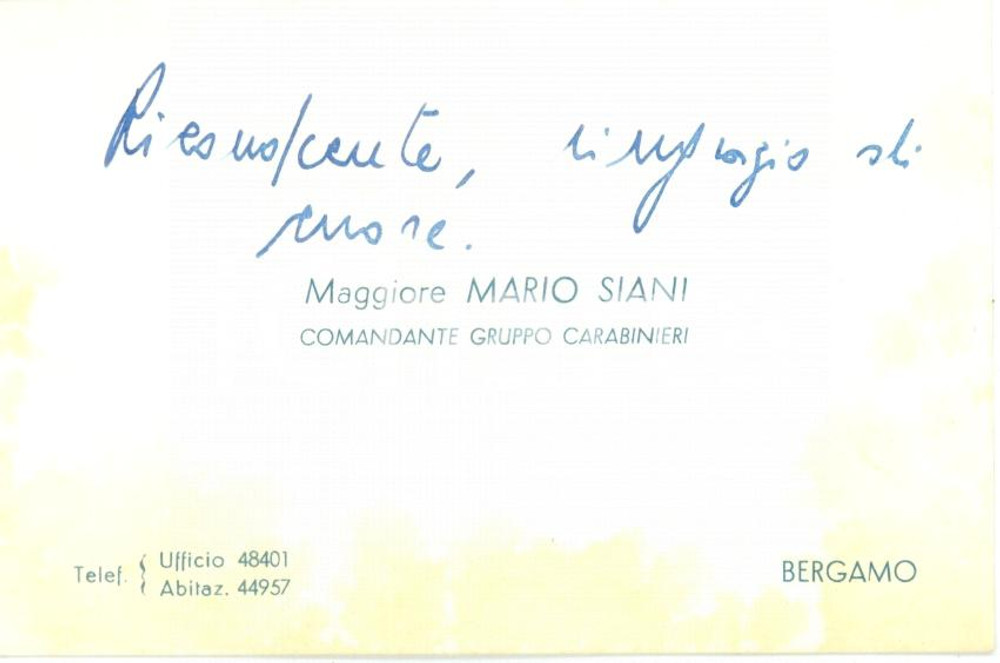 Riconoscente, ringrazio di
cuore.
Maggiore MARIO SIANI
COMANDANTE GRUPPO CARABINIERI
Telef. { Ufficio 48401
Abitaz. 44957
BERGAMO